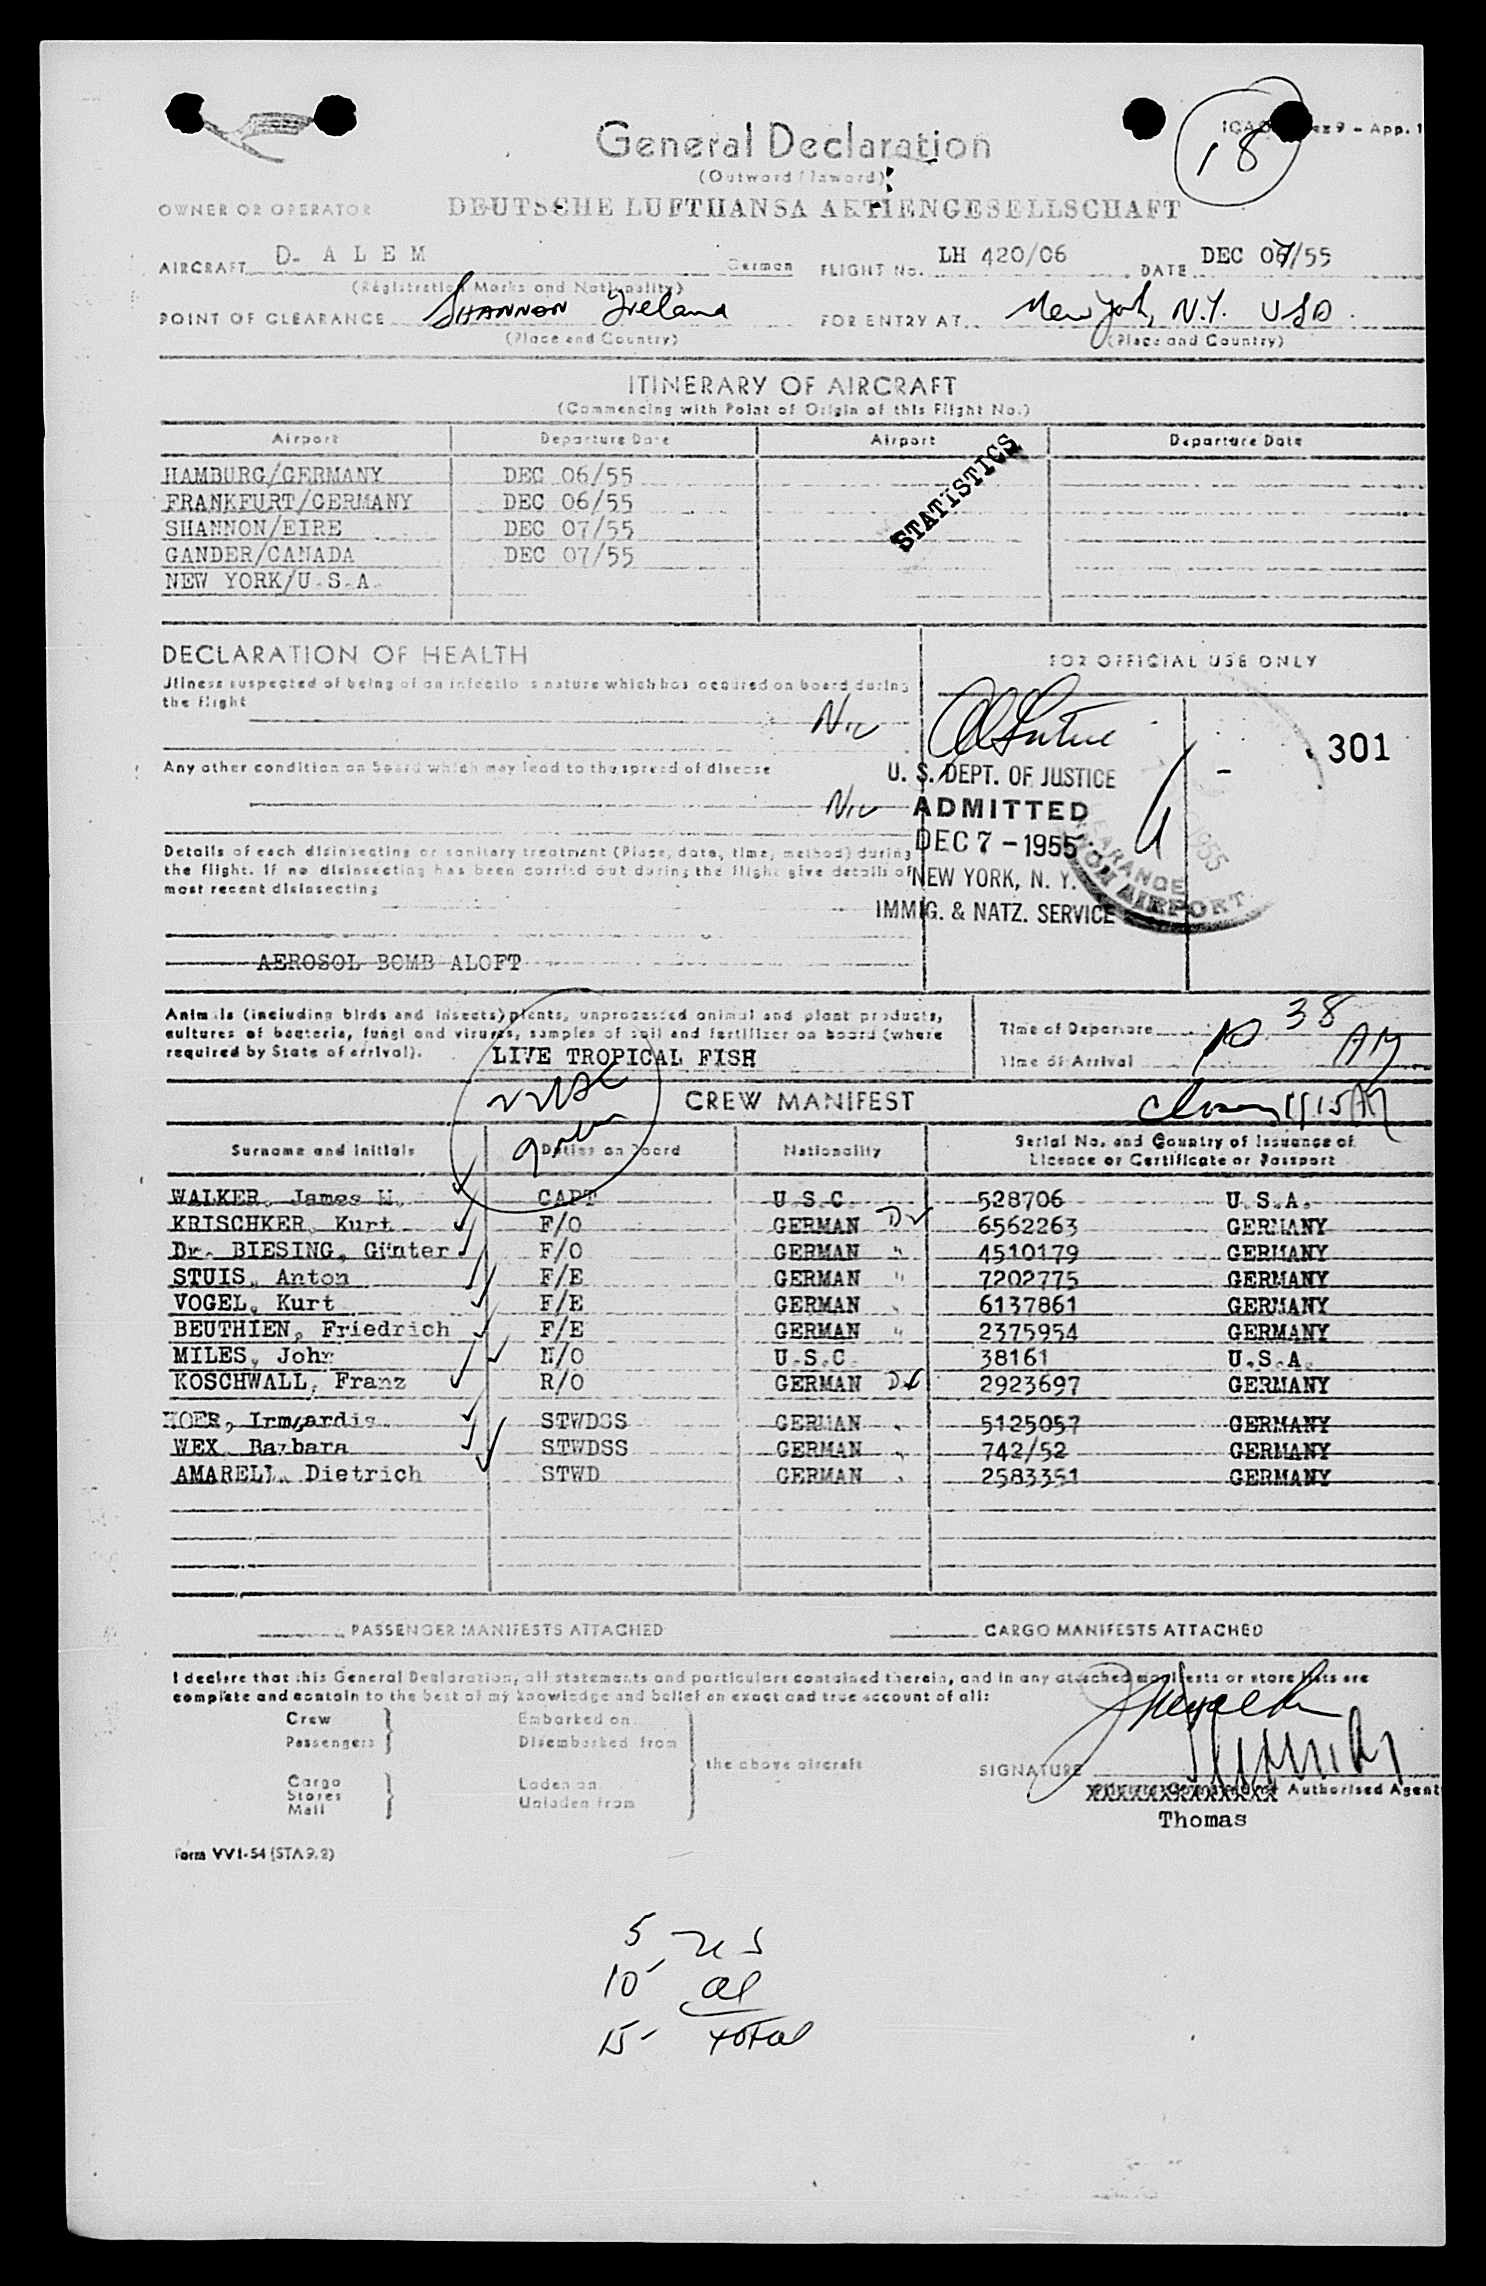 ICAO 9 - App. 1
18
General Declaration
(Outward / Inward)
OWNER OR OPERATOR DEUTSCHE LUFTHANSA AKTIENGESELLSCHAFT
AIRCRAFT D- A L E M German FLIGHT No. LH 420/06 DATE DEC 07/55
(Registration Marks and Nationality)
POINT OF CLEARANCE SHANNON Ireland FOR ENTRY AT New York, N.Y. USA
(Place and Country) (Place and Country)
ITINERARY OF AIRCRAFT
(Commencing with Point of Origin of this Flight No.)
Airport Departure Date Airport Departure Date
HAMBURG/GERMANY DEC 06/55
FRANKFURT/GERMANY DEC 06/55
SHANNON/EIRE DEC 07/55
GANDER/CANADA DEC 07/55
NEW YORK/U.S.A.
STATISTICS
DECLARATION OF HEALTH
Illness suspected of being of an infectious nature which has occured on board during
the flight
Nil
Any other condition on board which may lead to the spread of disease
Nil
Details of each disinsecting or sanitary treatment (Place, date, time, method) during
the flight. If no disinsecting has been carried out during the flight give details of
most recent disinsecting
AEROSOL BOMB ALOFT
FOR OFFICIAL USE ONLY
301
U. S. DEPT. OF JUSTICE
ADMITTED
DEC 7 - 1955
NEW YORK, N. Y.
IMMIG. & NATZ. SERVICE
CLEARANCE
AIRPORT
1955
Animals (including birds and insects) plants, unprocessed animal and plant products,
cultures of bacteria, fungi and viruses, samples of soil and fertilizer on board (where
required by State of arrival).
LIVE TROPICAL FISH
Time of Departure
Time of Arrival
10 38 AM
CREW MANIFEST
11 15 AM
Surname and Initials Duties on Board Nationality Serial No. and Country of Issuance of
Licence or Certificate or Passport
WALKER, James M. CAPT U.S.C. 528706 U.S.A.
KRISCHKER, Kurt F/O GERMAN 6562263 GERMANY
Dr. BIESING, Günter F/O GERMAN " 4510179 GERMANY
STUIS, Anton F/E GERMAN " 7202775 GERMANY
VOGEL, Kurt F/E GERMAN 6137861 GERMANY
BEUTHIEN, Friedrich F/E GERMAN " 2375954 GERMANY
MILES, John N/O U.S.C. 38161 U.S.A.
KOSCHWALL, Franz R/O GERMAN 2923697 GERMANY
Irmgardis STWDSS GERMAN 5125057 GERMANY
WEX, Barbara STWDSS GERMAN 742/52 GERMANY
AMARELL, Dietrich STWD GERMAN 2583351 GERMANY
PASSENGER MANIFESTS ATTACHED CARGO MANIFESTS ATTACHED
I declare that this General Declaration, all statements and particulars contained therein, and in any attached manifests or store lists are
complete and contain to the best of my knowledge and belief an exact and true account of all:
Crew Embarked on
Passengers Disembarked from
the above aircraft
Cargo Laden on
Stores
Mail Unladen from
SIGNATURE
Authorised Agent
Thomas
Form VV1-54 (STA 9.2)
5 US
10 al
15 total